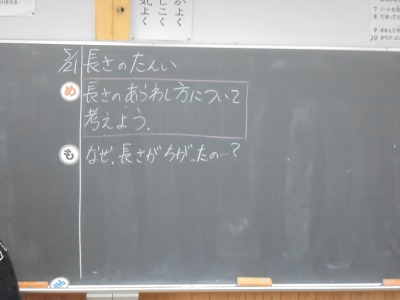 がよく
しこく
気よく
5/21 長さのたんい
め 長さのあらわし方について
考えよう。
も なぜ、長さがちがったの…?